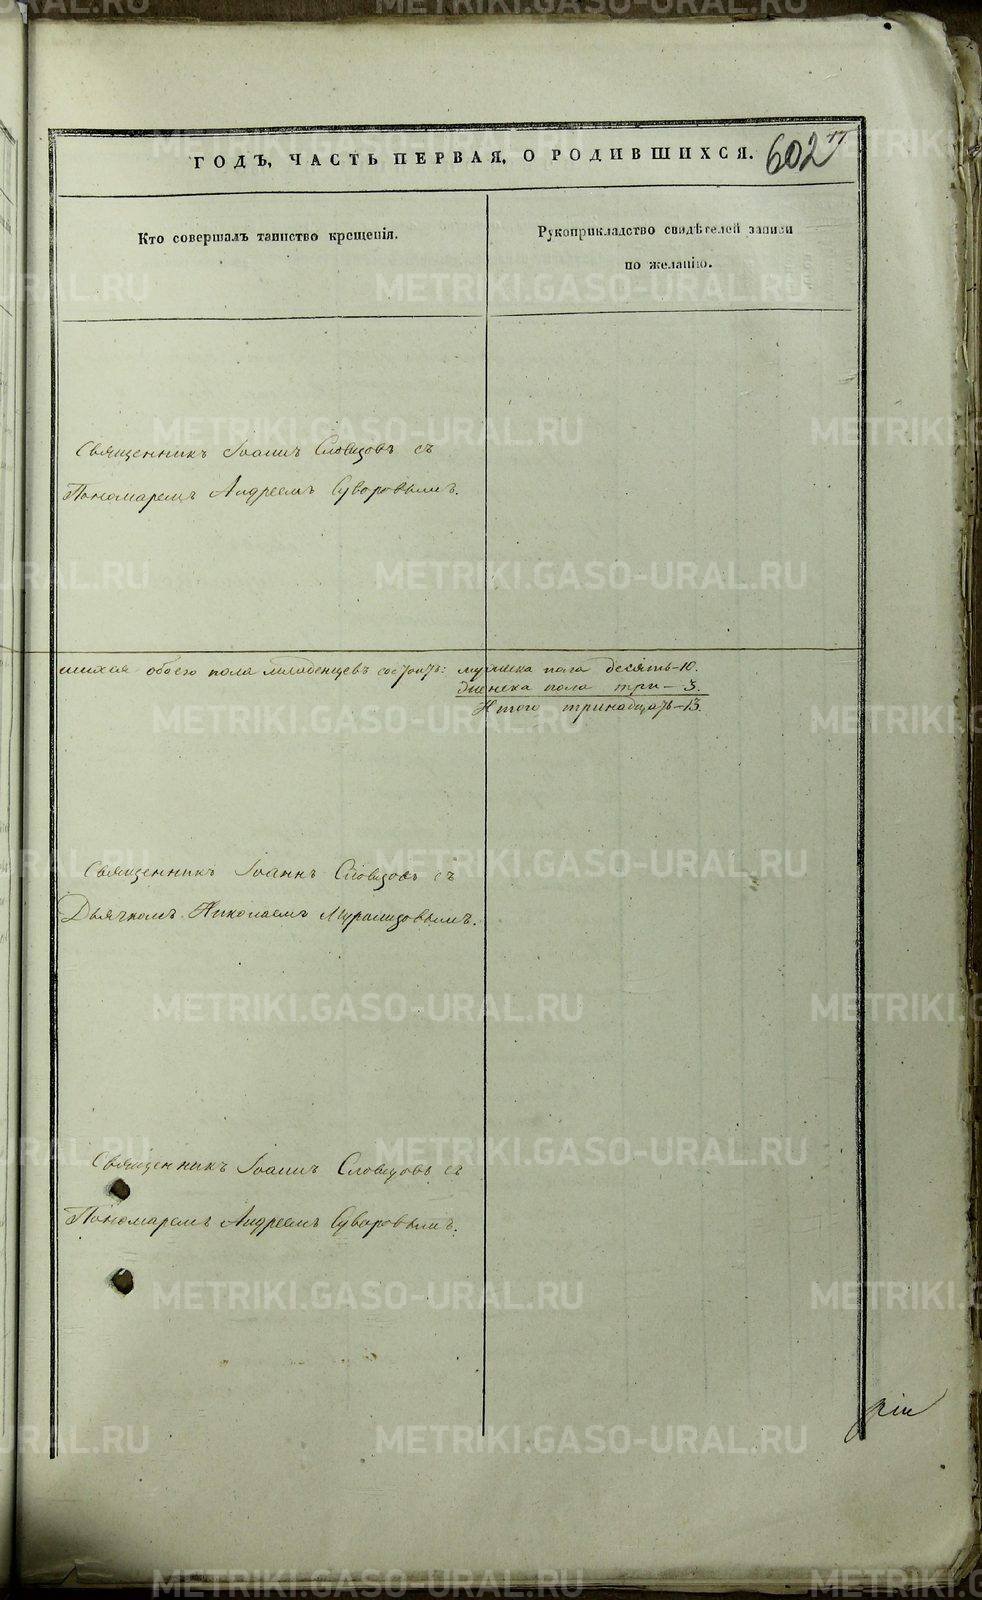 ГОДЪ, ЧАСТЬ ПЕРВАЯ, О РОДИВШИХСЯ.
602
Кто совершалъ таинство крещенія.
Рукоприкладство свидѣтелей записи
по желанію.
Священникъ Іоаннъ Словцовъ съ
Пономаремъ Андреемъ Суворовымъ.
шихся обоего пола младенцевъ состоитъ: мужеска пола десять-10.
женска пола три-3.
Итого тринадцать-13.
Священникъ Іоаннъ Словцовъ съ
Дьячкомъ Николаемъ
Священникъ Іоаннъ Словцовъ съ
Пономаремъ Андреемъ Суворовымъ.
METRIKI.GASO-URAL.RU